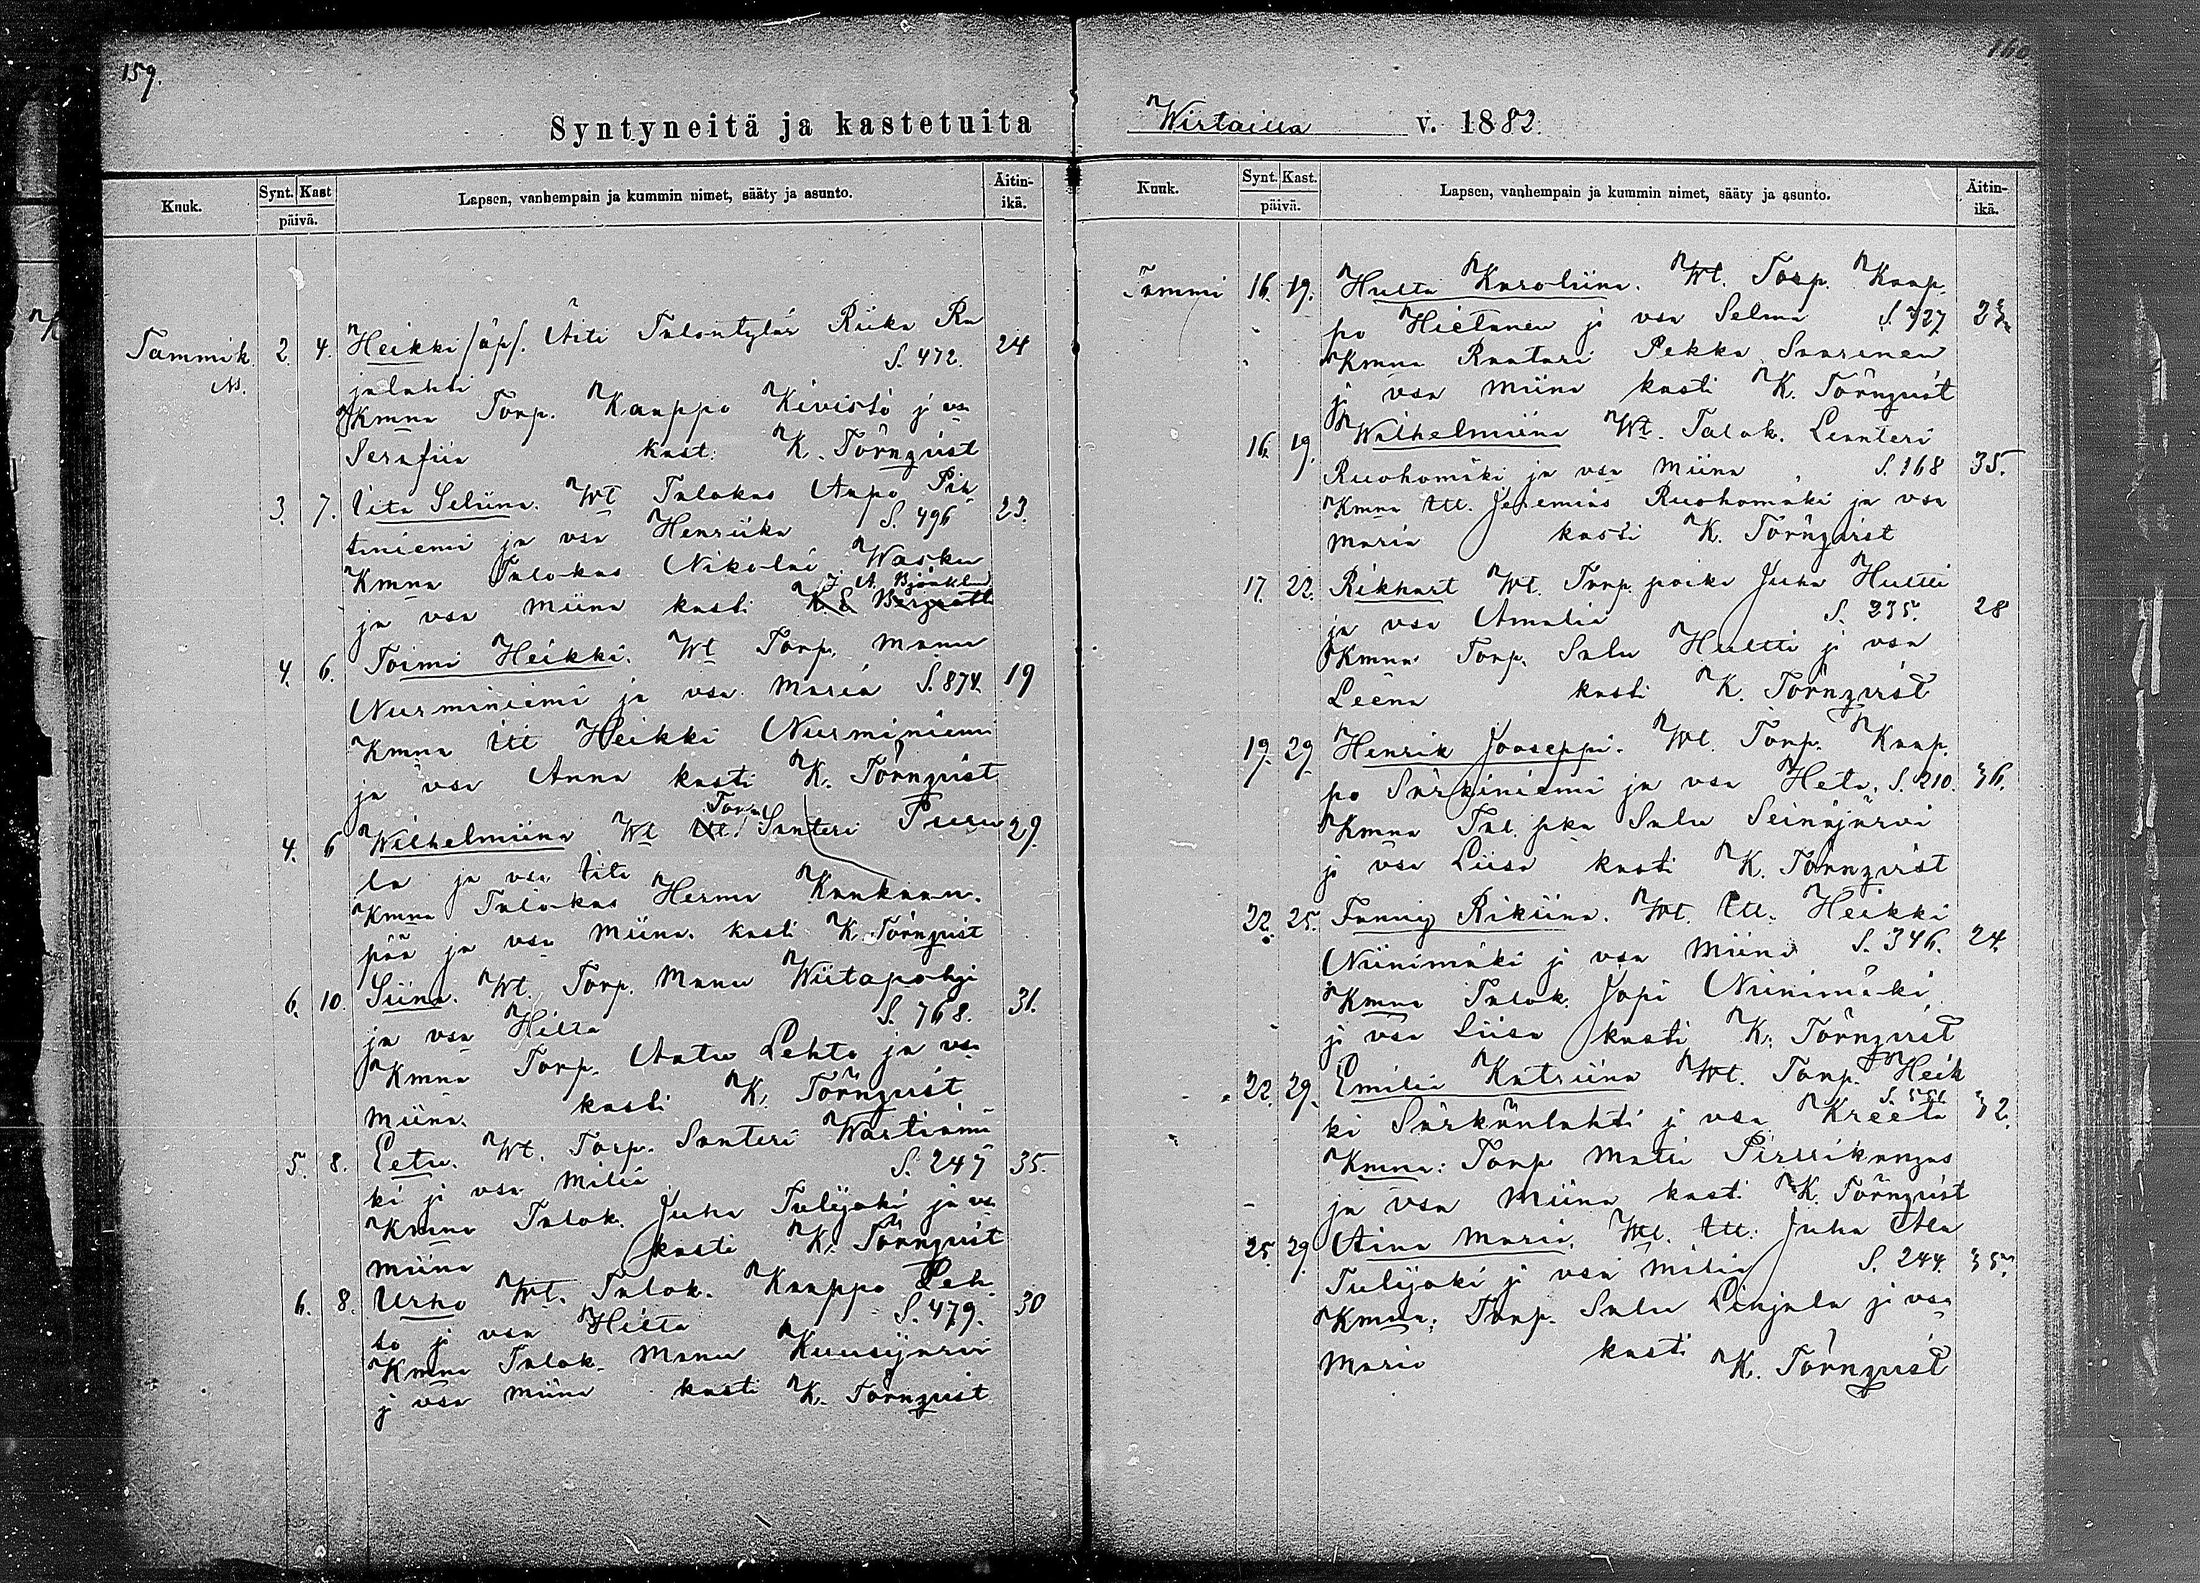 159.
Syntyneitä ja kastetuita
Kuuk. Synt. Kast päivä. Lapsen, vanhempain ja kummin nimet, sääty ja asunto. Äitin-ikä.
Tammik. 2. 4. Heikki /äp/. Äiti Talontytär Riika Ra 24
jalahti S. 472.
Kmna Torp. Kaappo Kivistö j vsa
Serafiia kast: K. Törnqvist
3. 7. Iita Seliina. Wt Talokas Aapo Pih 23.
tiniemi ja vsa Henriika S. 496
Kmna Talokas Nikolai Wasku
J. A. Björklund
ja vsa Miina kasti K. E. Bergroth
4. 6. Toimi Heikki. Wt Torp. Manu
Nurminiemi ja vsa Maria S. 874. 19
Kmna Itt Heikki Nurminiemi
ja vsa Anna kasti K. Törnqvist
Torp.
4. 6 Wilhelmiina Wt Itt. Santeri Puru 29.
la ja vsa Iita
Kmna Talokas Herma Kankaan-
pää ja vsa Miina. kasti K. Törnqvist
6. 10. Siina. Wt. Torp. Manu Wiitapohji 31.
ja vsa Hilta S. 768.
Kmna Torp. Aatu Lehto ja vsa
Miina. kasti K. Törnqvist
5. 8. Eetu. Wt. Torp. Santeri Wartiamä 35.
ki j vsa Milia S. 247
Kmna Talok. Juha Tulijoki ja vsa
Miina kasti K. Törnqvist
6. 8. Urho Wt. Talok. Kaappo Leh 30
to j vsa Hilta S. 479.
Kmna Talok. Manu Kuusijärvi
j vsa Miina kasti K. Törnqvist
160.
Wirtailla v. 1882.
Kuuk. Synt. Kast. päivä. Lapsen, vanhempain ja kummin nimet, sääty ja asunto. Äitin-ikä.
Tammi 16. 19. Hulta Karoliina. Wt. Torp. Kaap-
po Hietanen j vsa Selma S. 727
Kmna Raatari Pekka Saarinen
j vsa Miina kasti K. Törnqvist
16. 19. Wilhelmiina Wt. Talok. Leanteri
Ruohomäki ja vsa Miina S. 168 35.
Kmna Itt. Jeremias Ruohomäki ja vsa
Maria kasti K. Törnqvist
17. 22. Rikhart Wt. Torp. poika Juha Hultti
ja vsa Amalia S. 235. 28
Kmna Torp. Salu Hultti j vsa
Leena kasti K. Törnqvist
19. 29. Henrik Jooseppi. Wt. Torp. Kaap-
po Särkiniemi ja vsa Heta. S. 210. 36.
Kmna Tal. pka Salu Seinäjärvi
j vsa Liisa kasti K. Törnqvist
22. 25. Fanny Rikiina. Wt. Itt. Heikki
Niinimäki j vsa Miina S. 346. 24.
Kmna Talok. Japi Niinimäki
j vsa Liisa kasti K. Törnqvist
22. 29. Emilia Katriina Wt. Torp. Heik
ki Särkänlahti j vsa Kreeta 32.
Kmna: Torp Matti Pirttikangas
ja vsa Miina kasti K. Törnqvist
25. 29. Aina Maria. Wt. Itt. Juha Ala
Tulijoki j vsa Milia S. 244. 35.
Kmna: Torp. Salu Linjala j vsa
Maria kasti K. Törnqvist